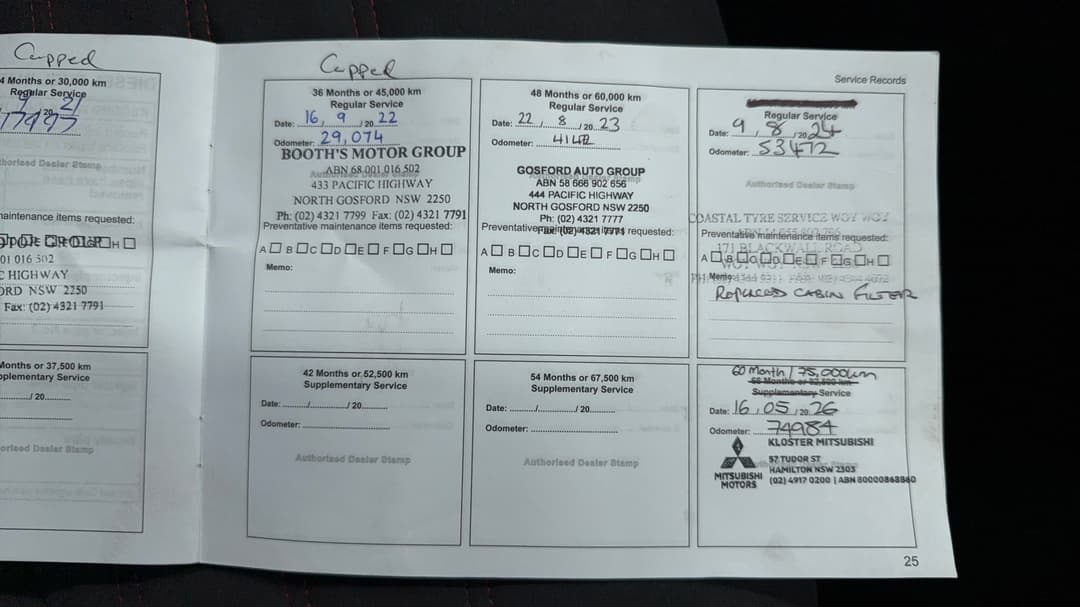 Capped
4 Months or 30,000 km
Regular Service
9 21
17497
Authorised Dealer Stamp
maintenance items requested:
GROUP H
01 016 502
C HIGHWAY
ORD NSW 2250
Fax: (02) 4321 7791
Months or 37,500 km
pplementary Service
/ 20
orised Dealer Stamp
Capped
36 Months or 45,000 km
Regular Service
Date: 16 / 9 / 20 22
Odometer: 29,074
BOOTH'S MOTOR GROUP
ABN 68 001 016 502
433 PACIFIC HIGHWAY
NORTH GOSFORD NSW 2250
Ph: (02) 4321 7799 Fax: (02) 4321 7791
Preventative maintenance items requested:
A B C D E F G H
Memo:
42 Months or 52,500 km
Supplementary Service
Date: / / 20
Odometer:
Authorised Dealer Stamp
48 Months or 60,000 km
Regular Service
Date: 22 / 8 / 20 23
Odometer:
GOSFORD AUTO GROUP
ABN 58 666 902 656
444 PACIFIC HIGHWAY
NORTH GOSFORD NSW 2250
Ph: (02) 4321 7777
Fax: (02) 4321 7771
Preventative maintenance items requested:
A B C D E F G H
Memo:
54 Months or 67,500 km
Supplementary Service
Date: / / 20
Odometer:
Authorised Dealer Stamp
Service Records
Regular Service
Date: 9 / 8 / 20 24
Odometer: 53472
Authorised Dealer Stamp
COASTAL TYRE SERVICE WOY WOY
Preventative maintenance items requested:
171 BLACKWALL ROAD
A B C D E F G H
Memo:
REPLACED CABIN FILTER
60 Month / 75,000km
Supplementary Service
Date: 16 / 05 / 20 26
Odometer: 74984
KLOSTER MITSUBISHI
57 TUDOR ST
HAMILTON NSW 2303
(02) 4917 0200 | ABN 80000868860
MITSUBISHI
MOTORS
25